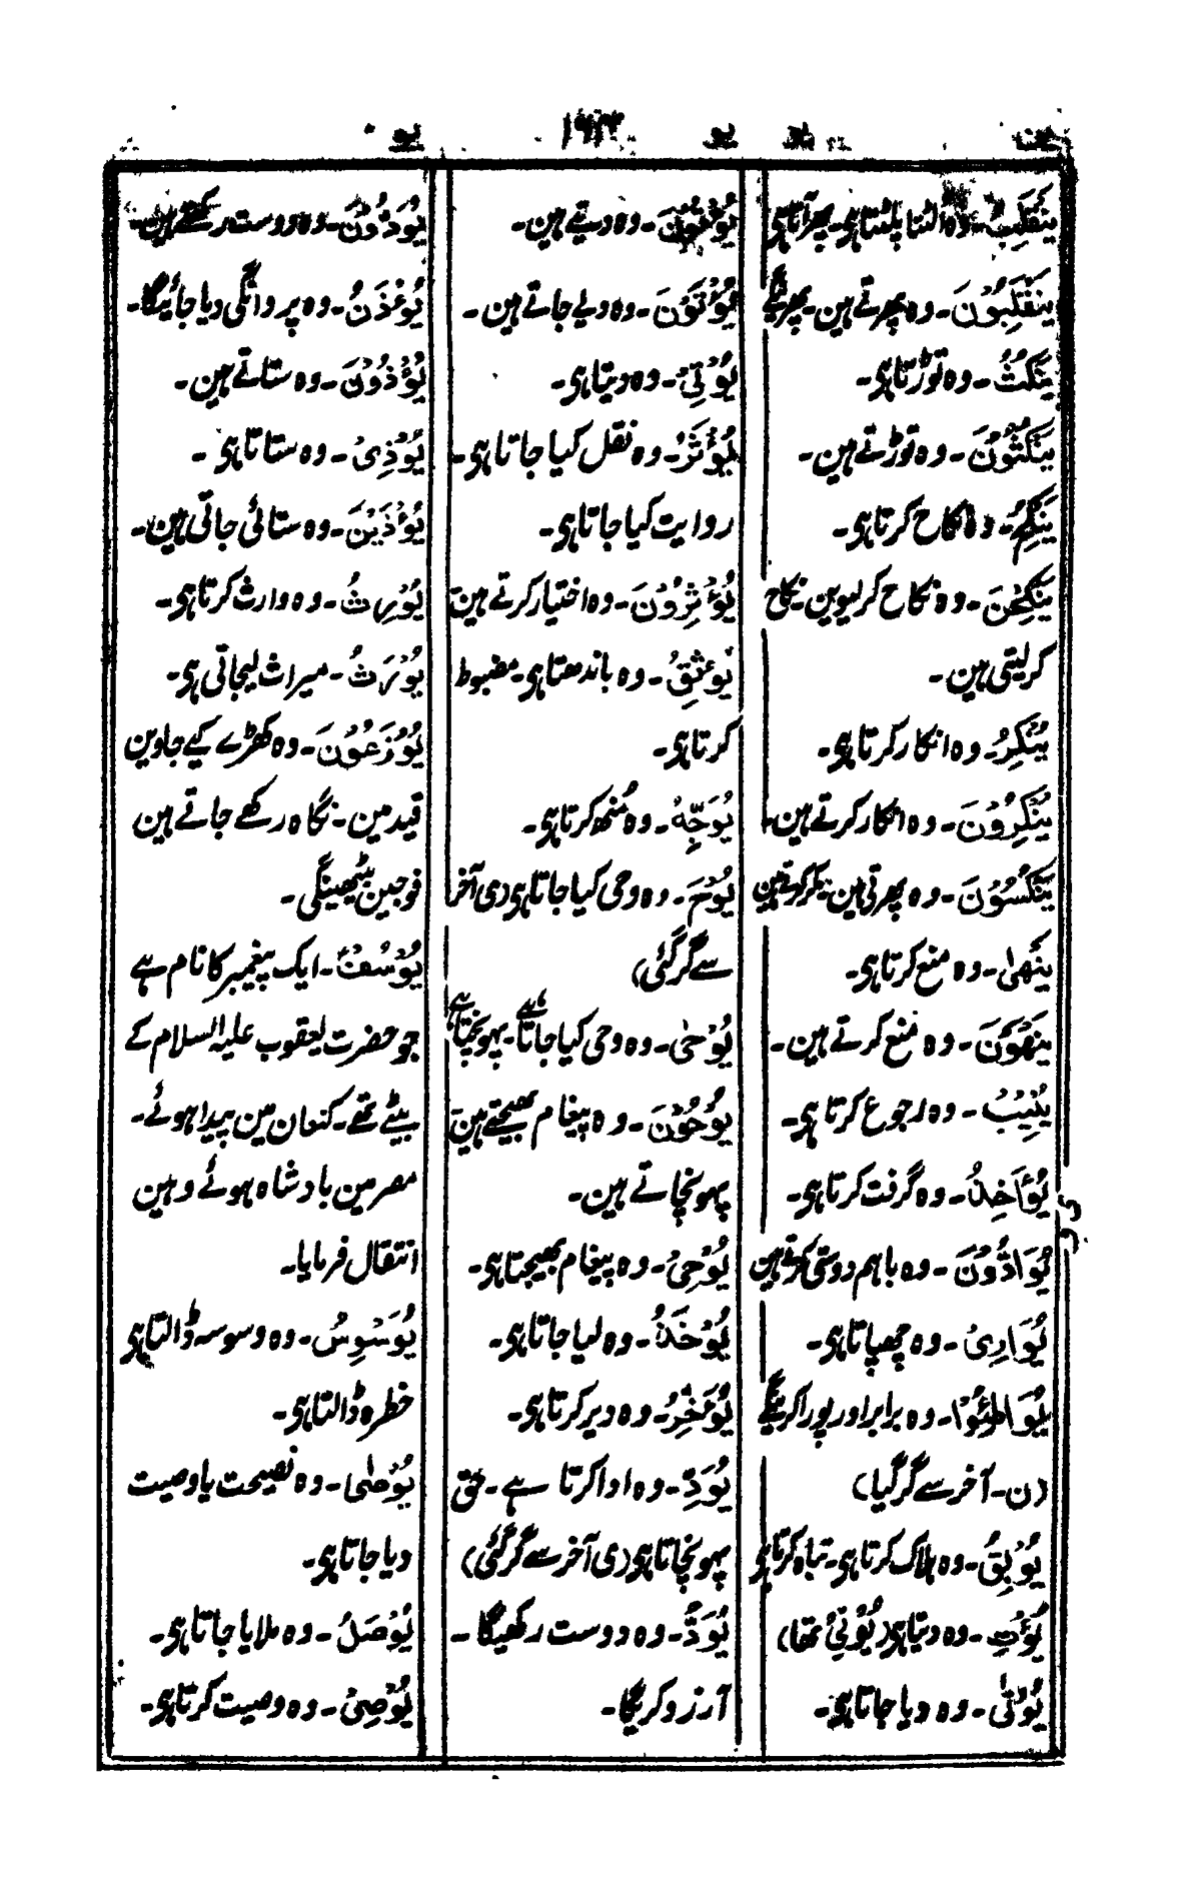 یو ۱۹۳ یو
یَنْقَلِبُ۔ وہ الٹتا پلٹتا ہی۔ پھر آتا ہی
یَنْقَلِبُوْنَ۔ وہ پھرتے ہین۔ پھرینگے
یَنْکُثُ۔ وہ توڑتا ہی۔
یَنْکُثُوْنَ۔ وہ توڑتے ہین۔
یَنْکِحُ۔ وہ نکاح کرتا ہی۔
یَنْکِحْنَ۔ وہ نکاح کرلیوین۔ نکاح
کرلیتی ہین۔
یُنْکِرُ۔ وہ انکار کرتا ہی۔
یُنْکِرُوْنَ۔ وہ انکار کرتے ہین۔
یَنْکُسُوْنَ۔ وہ پھرتی ہین۔
یَنْھٰی۔ وہ منع کرتا ہی۔
یَنْھَوْنَ۔ وہ منع کرتے ہین۔
یُنِیْبُ۔ وہ رجوع کرتا ہی۔
یُؤَاخِذُ۔ وہ گرفت کرتا ہی۔
یُوَادُّوْنَ۔ وہ باہم دوستی کرتے ہین
یُوَارِیْ۔ وہ چھپاتا ہی۔
یُوَاطِئُوْا۔ وہ برابر اور پورا کرینگے
(ن۔ آخر سے گرگیا)
یُوْبِقُ۔ وہ ہلاک کرتا ہی۔ تباہ کرتا ہی
یُؤْتِ۔ وہ دیتا ہی (یُؤْتِیْ تھا)
یُؤْتٰی۔ وہ دیا جاتا ہی۔
یُؤْتُوْنَ۔ وہ دیتے ہین۔
یُؤْتَوْنَ۔ وہ دیے جاتے ہین۔
یُؤْتِیْ۔ وہ دیتا ہی۔
یُؤْثَرُ۔ وہ نقل کیا جاتا ہی۔
روایت کیا جاتا ہی۔
یُؤْثِرُوْنَ۔ وہ اختیار کرتے ہین
یُوْثِقُ۔ وہ باندھتا ہی۔ مضبوط
کرتا ہی۔
یُوَجِّهُ۔ وہ مُنھ کرتا ہی۔
یُوْحَ۔ وہ وحی کیا جاتا ہی (ی آخر
سے گرگئی)
یُوْحٰی۔ وہ وحی کیا جاتا ہے۔ پہونچتا ہے
یُوْحُوْنَ۔ وہ پیغام بھیجتے ہین
پہونچاتے ہین۔
یُوْحِیْ۔ وہ پیغام بھیجتا ہی۔
یُؤْخَذُ۔ وہ لیا جاتا ہی۔
یُؤَخِّرُ۔ وہ دیر کرتا ہی۔
یُؤَدِّ۔ وہ ادا کرتا ہے۔ حق
پہونچاتا ہی (ی آخر سے گرگئی)
یُوَدُّ۔ وہ دوست رکھیگا۔
آرزو کریگا۔
یُوَدُّوْنَ۔ وہ دوست رکھتے ہین۔
یُؤْذَنُ۔ وہ پروانگی دیا جائیگا۔
یُؤْذُوْنَ۔ وہ ستاتے ہین۔
یُؤْذِیْ۔ وہ ستاتا ہی۔
یُؤْذَیْنَ۔ وہ ستائی جاتی ہین۔
یُوْرِثُ۔ وہ وارث کرتا ہی۔
یُوْرَثُ۔ میراث لیجاتی ہی۔
یُوْزَعُوْنَ۔ وہ کھڑے کیے جاوین
قید مین۔ نگاہ رکھے جاتے ہین
فوجین بیٹھینگی۔
یُوْسُفُ۔ ایک پیغمبر کا نام ہے
جو حضرت یعقوب علیہ السلام کے
بیٹے تھے۔ کنعان مین پیدا ہوئے۔
مصر مین بادشاہ ہوئے وہین
انتقال فرمایا۔
یُوَسْوِسُ۔ وہ وسوسہ ڈالتا ہی
خطرہ ڈالتا ہی۔
یُوْصٰی۔ وہ نصیحت یا وصیت
دیا جاتا ہی۔
یُوْصَلُ۔ وہ ملایا جاتا ہی۔
یُوْصِیْ۔ وہ وصیت کرتا ہی۔